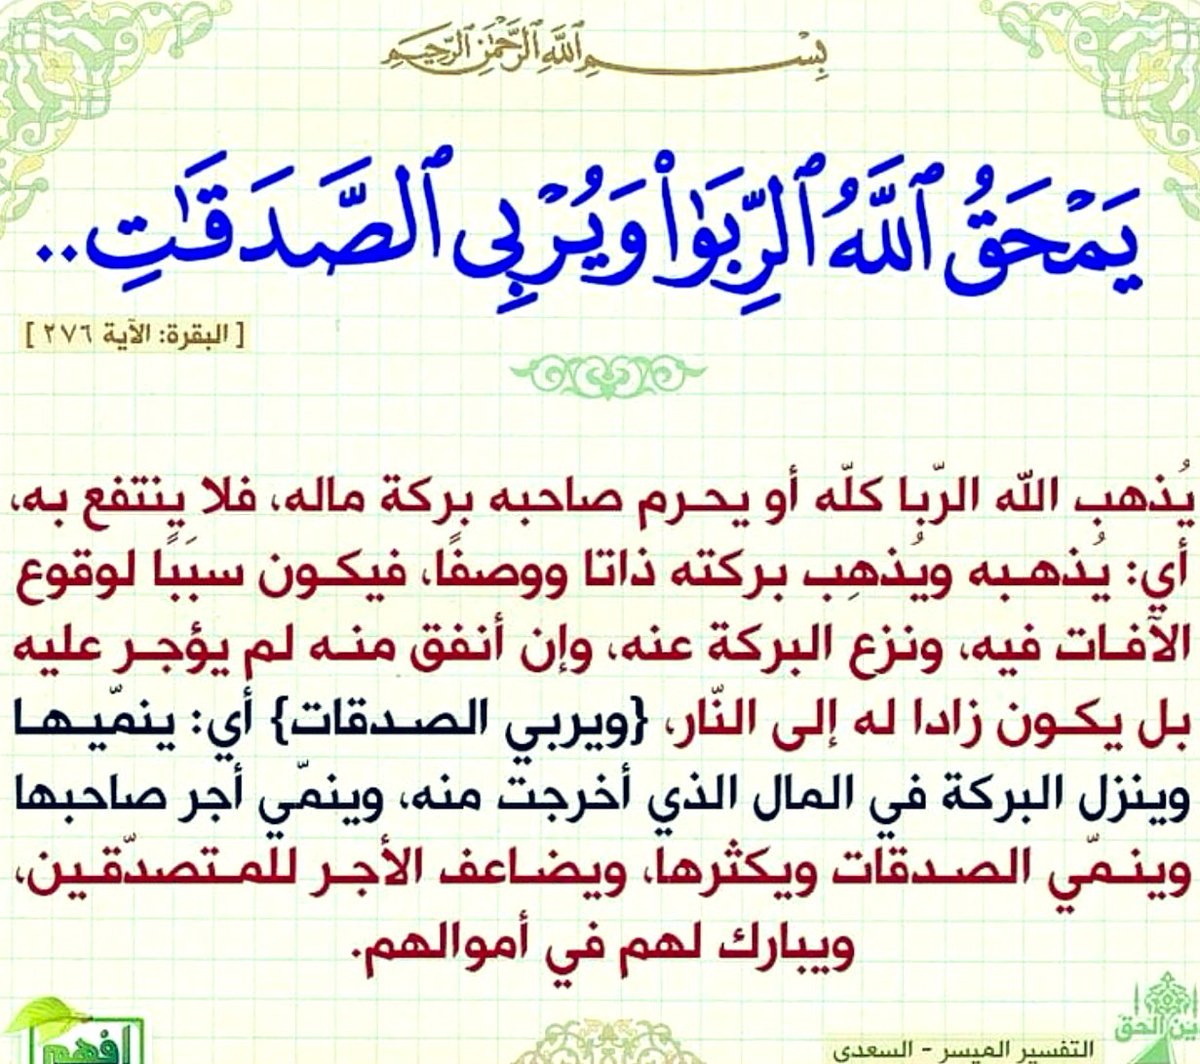 بِسْمِ ٱللَّهِ ٱلرَّحْمَٰنِ ٱلرَّحِيمِ
يَمْحَقُ ٱللَّهُ ٱلرِّبَوٰا۟ وَيُرْبِى ٱلصَّدَقَٰتِ..
[ البقرة: الآية ٢٧٦ ]
يُذهب الله الرّبا كلّه أو يحرم صاحبه بركة ماله، فلا ينتفع به،
أي: يُذهبه ويُذهِب بركته ذاتا ووصفًا، فيكون سبَبًا لوقوع
الآفات فيه، ونزع البركة عنه، وإن أنفق منه لم يؤجر عليه
بل يكون زادا له إلى النّار، {ويربي الصدقات} أي: ينمّيها
وينزل البركة في المال الذي أخرجت منه، وينمّي أجر صاحبها
وينمّي الصدقات ويكثرها، ويضاعف الأجر للمتصدّقين،
ويبارك لهم في أموالهم.
ين الحق
افهم
التفسير الميسر - السعدي